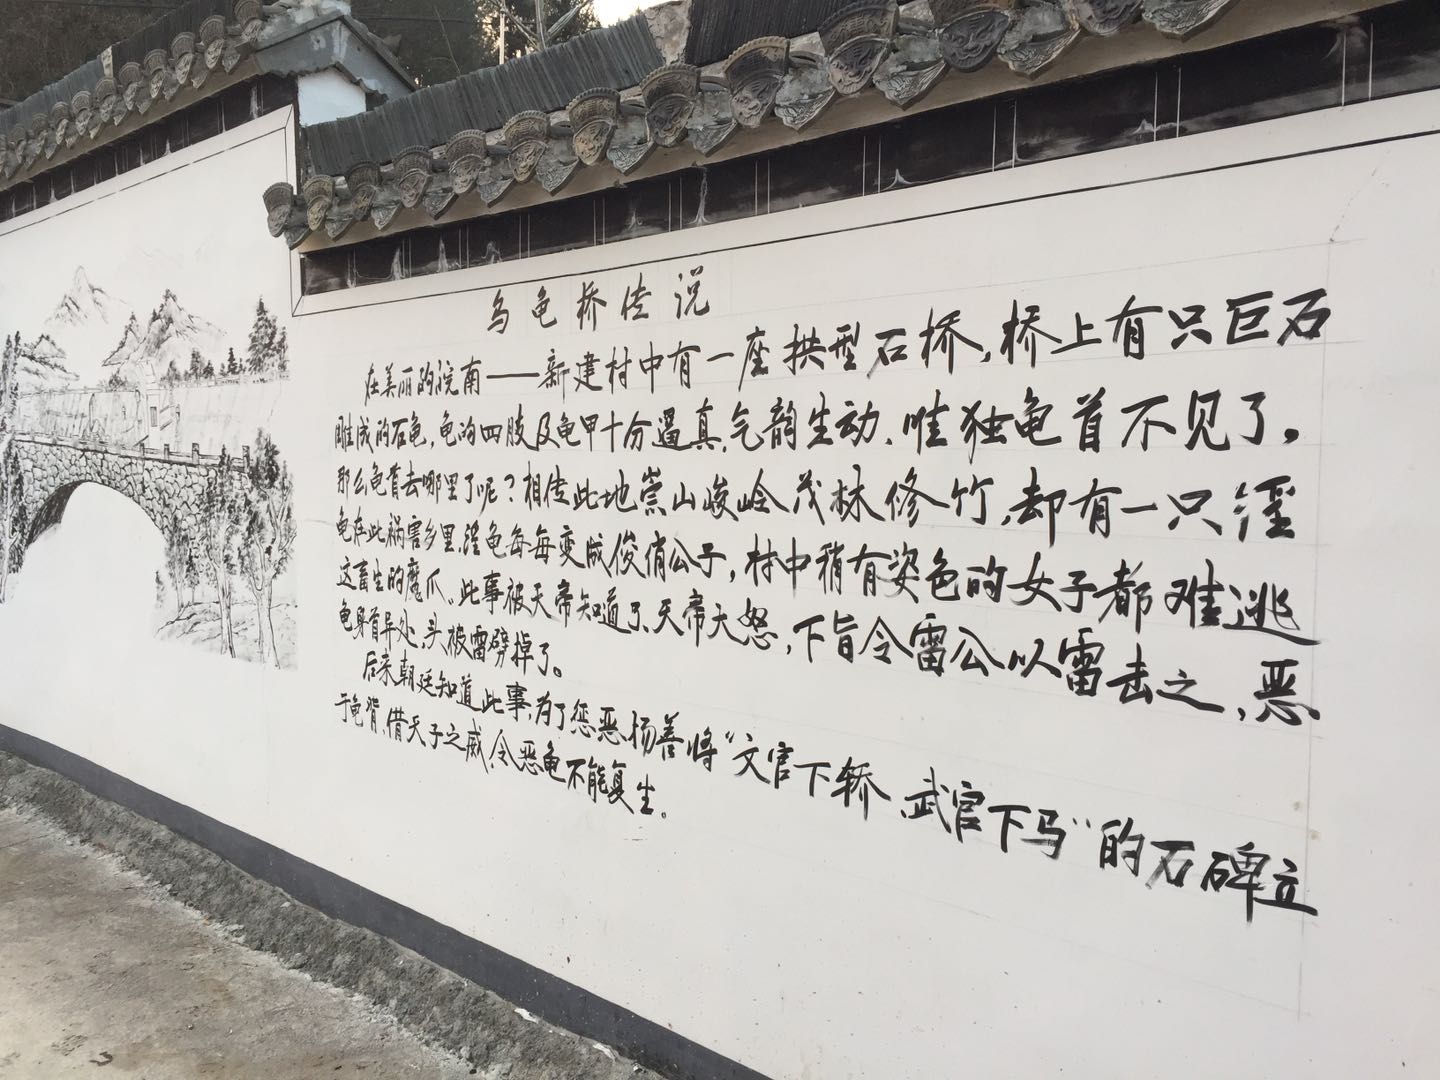 乌龟桥传说
在美丽的皖南——新建村中有一座拱型石桥，桥上有只巨石
雕成的石龟，龟的四肢及龟甲十分逼真，气韵生动、唯独龟首不见了。
那么龟首去哪里了呢？相传此地崇山峻岭茂林修竹，却有一只淫
龟在此祸害乡里，淫龟每每变成俊俏公子，村中稍有姿色的女子都难逃
这畜生的魔爪。此事被天帝知道了、天帝大怒，下旨令雷公以雷击之，恶
龟身首异处，头被雷劈掉了。
后来朝廷知道此事，为了惩恶扬善将“文官下轿、武官下马”的石碑立
于龟背，借天子之威，令恶龟不能复生。